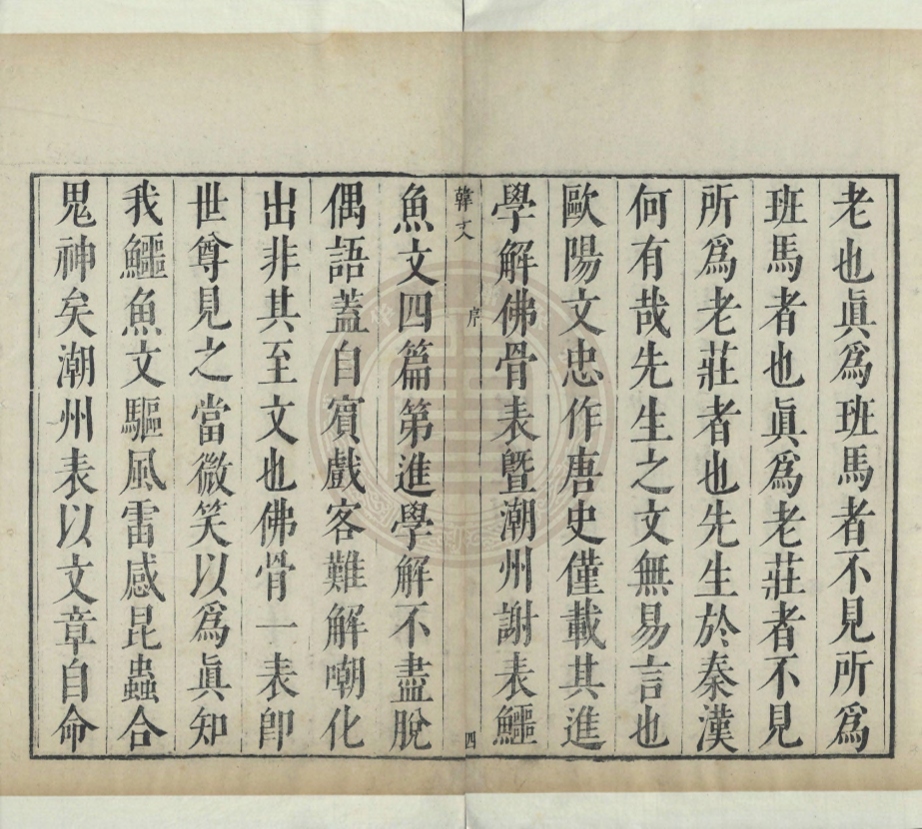 老也眞爲班馬者不見所爲
班馬者也眞爲老莊者不見
所爲老莊者也先生於秦漢
何有哉先生之文無易言也
歐陽文忠作唐史僅載其進
學解佛骨表曁潮州謝表鱷
韓文
序
四
魚文四篇第進學解不盡脫
偶語蓋自賓戲客難解嘲化
出非其至文也佛骨一表卽
世尊見之當微笑以爲眞知
我鱷魚文驅風雷感昆蟲合
鬼神矣潮州表以文章自命